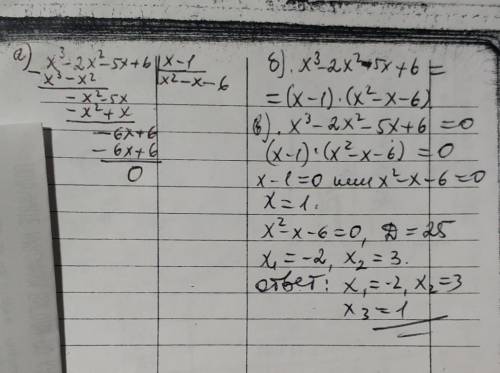 а) x³-2x²-5x+6 | x-1
- x³-x² | x²-x-6
- x²-5x
- x²+x
- 6x+6
- 6x+6
0
б). x³-2x²-5x+6 =
=(x-1)·(x²-x-6)
в). x³-2x²-5x+6=0
(x-1)·(x²-x-6)=0
x-1=0 или x²-x-6=0
x=1.
x²-x-6=0, D=25
x₁=-2, x₂=3.
ответ: x₁=-2, x₂=3
x₃=1